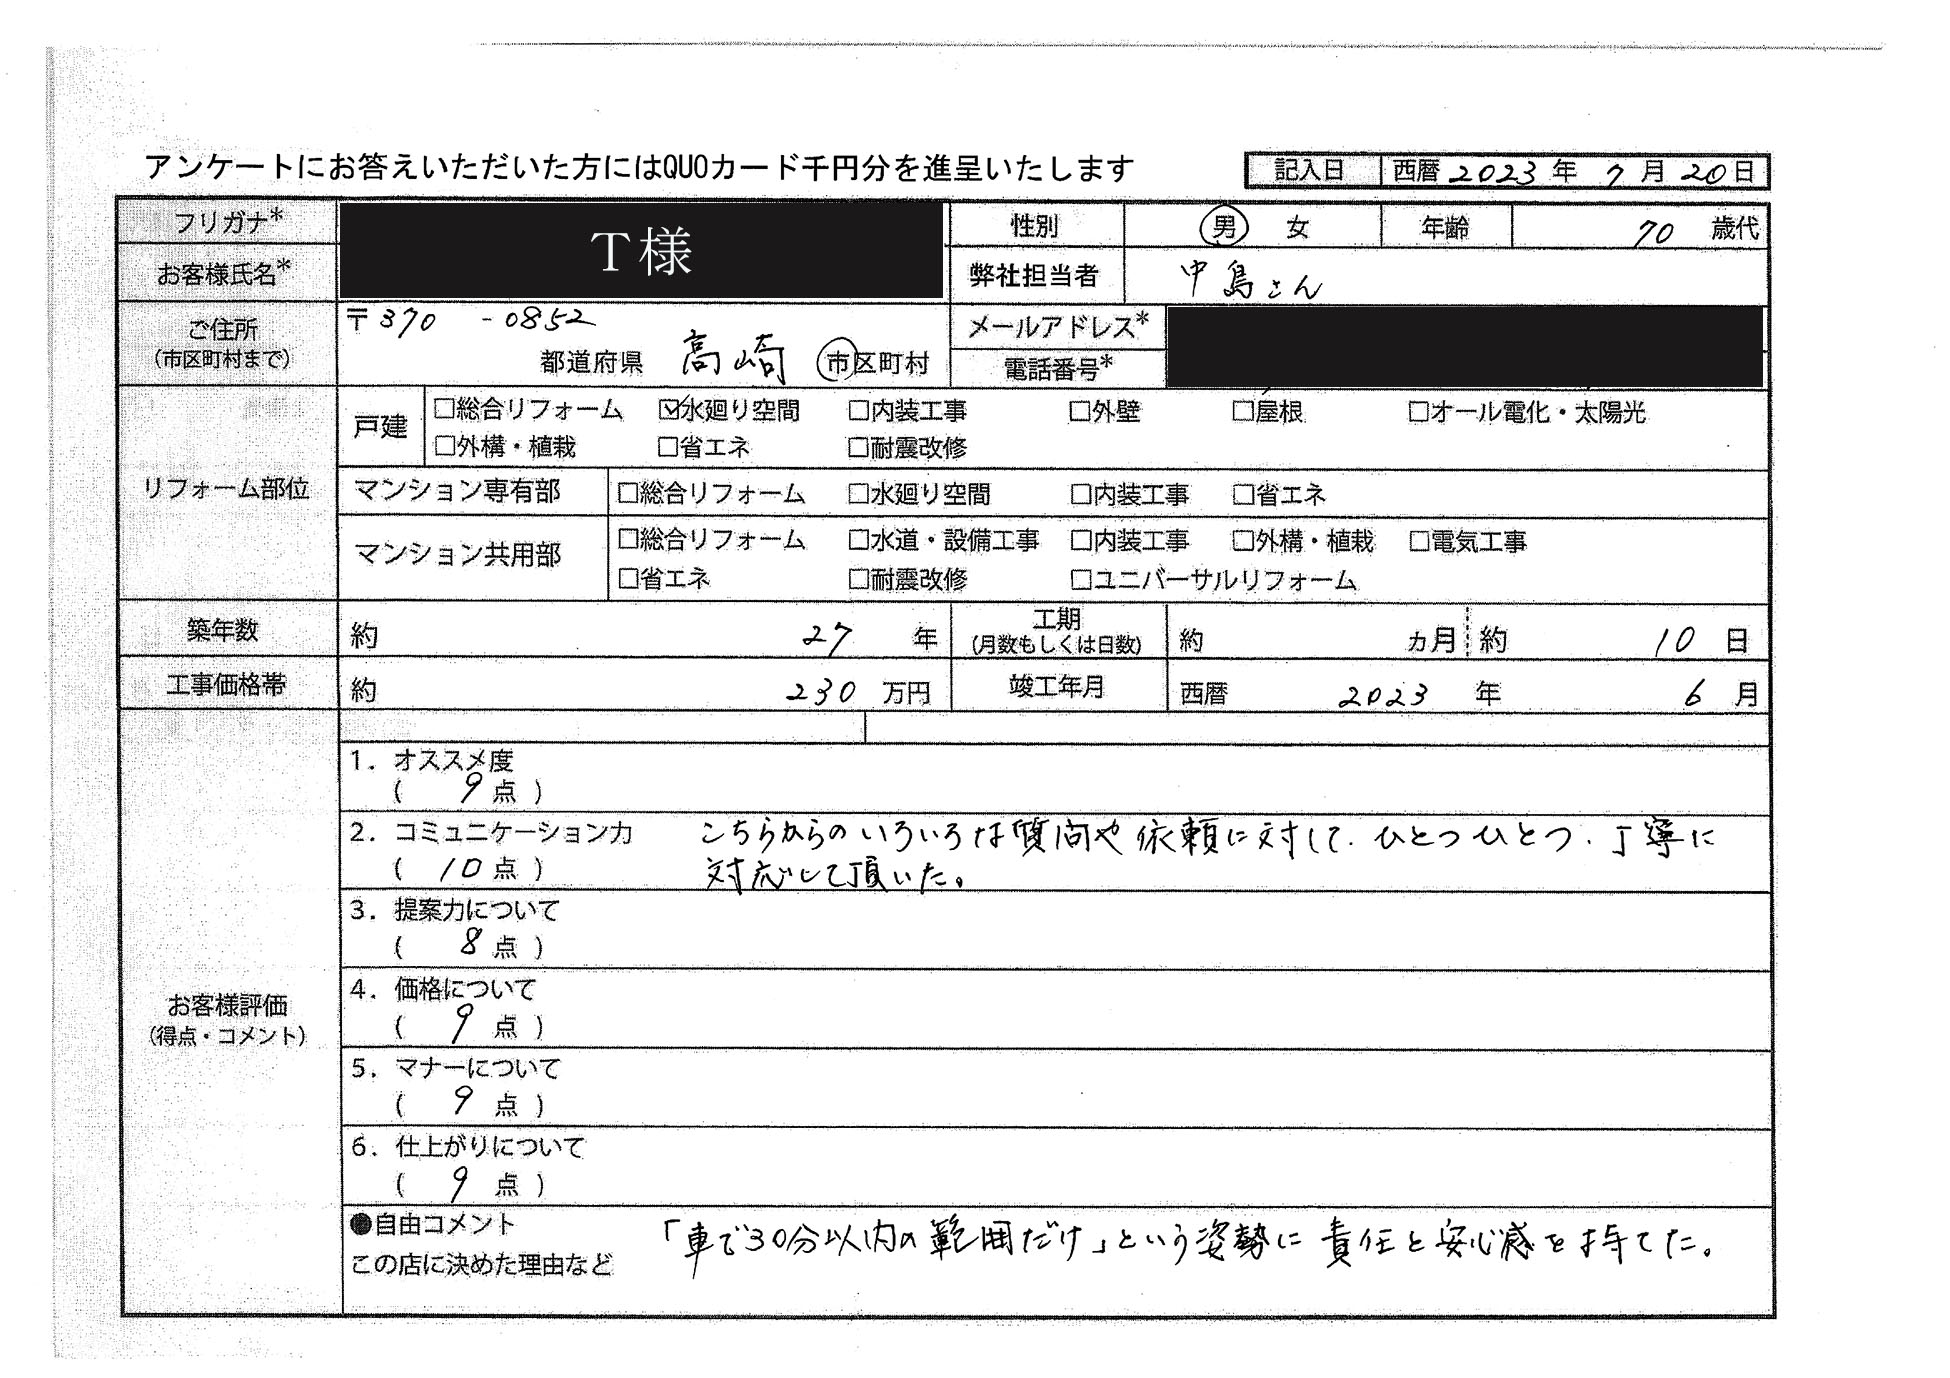 アンケートにお答えいただいた方にはQUOカード千円分を進呈いたします
記入日 西暦 2023 年 7 月 20 日
フリガナ*
お客様氏名*
T様
性別 男 女 年齢 70 歳代
弊社担当者 中島さん
ご住所
(市区町村まで)
〒370 -0852
都道府県 高崎 市区町村
メールアドレス*
電話番号*
リフォーム部位
戸建
□総合リフォーム ☑水廻り空間 □内装工事 □外壁 □屋根 □オール電化・太陽光
□外構・植栽 □省エネ □耐震改修
マンション専有部 □総合リフォーム □水廻り空間 □内装工事 □省エネ
マンション共用部
□総合リフォーム □水道・設備工事 □内装工事 □外構・植栽 □電気工事
□省エネ □耐震改修 □ユニバーサルリフォーム
築年数 約 27 年
工期
(月数もしくは日数)
約 ヵ月 約 10 日
工事価格帯 約 230 万円 竣工年月 西暦 2023 年 6 月
お客様評価
(得点・コメント)
1. オススメ度
( 9 点 )
2. コミュニケーション力 こちらからのいろいろな質問や依頼に対して、ひとつひとつ、丁寧に
( 10 点 ) 対応して頂いた。
3. 提案力について
( 8 点 )
4. 価格について
( 9 点 )
5. マナーについて
( 9 点 )
6. 仕上がりについて
( 9 点 )
●自由コメント 「車で30分以内の範囲だけ」という姿勢に責任と安心感を持てた。
この店に決めた理由など